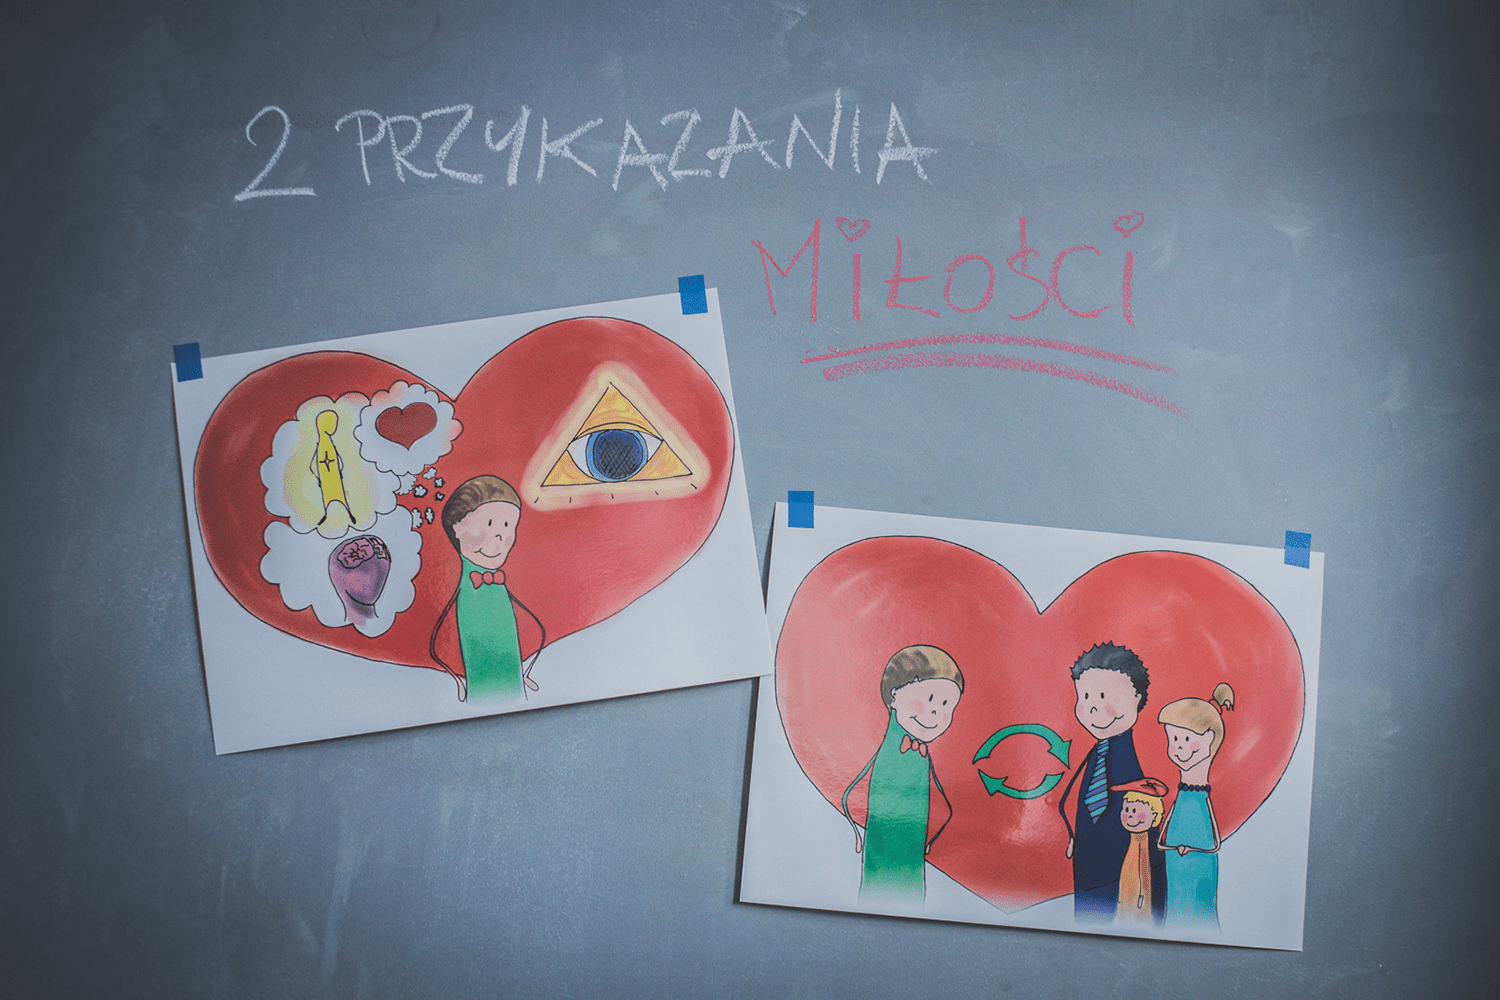 2 PRZYKAZANIA
MiŁOŚCi